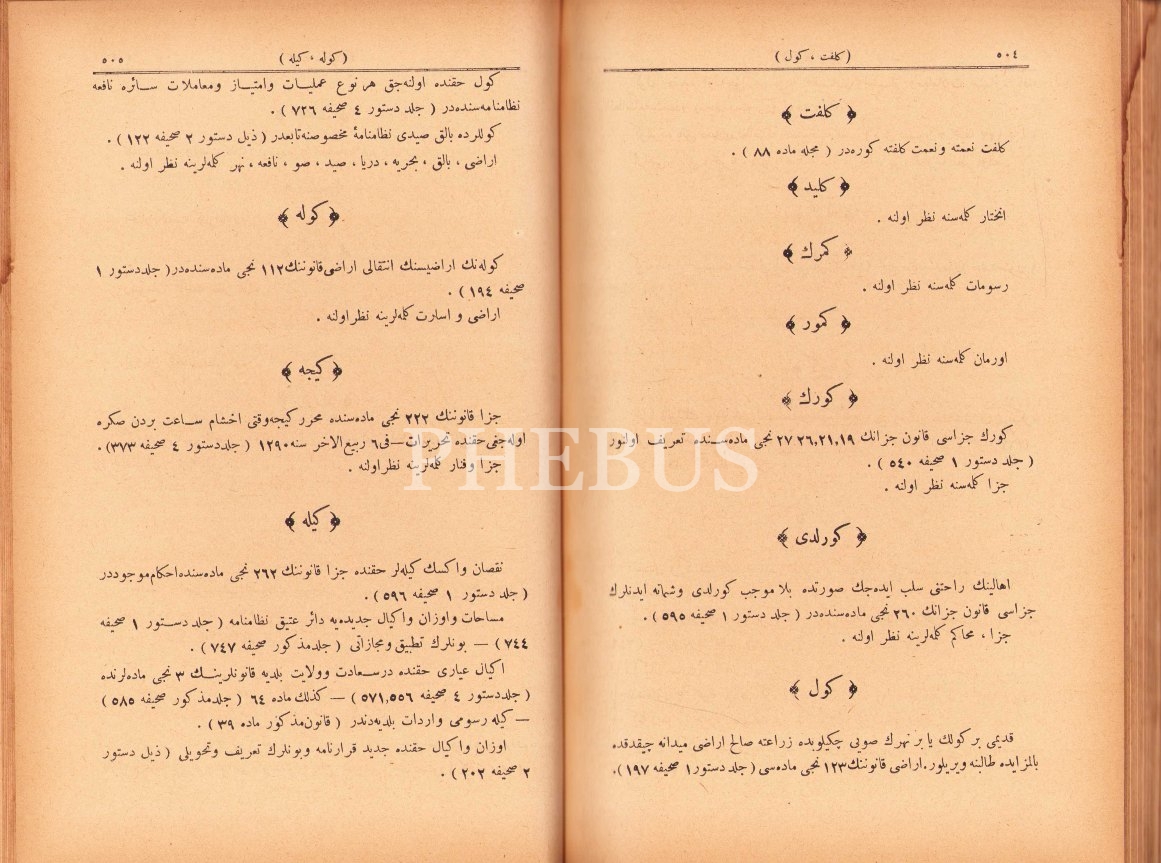 ٥٠٤
( كلفت ، كول )
﴿ كلفت ﴾
كلفت نعمته و نعمت كلفته كوره‌در ( مجله ماده ٨٨ ) .
﴿ كليد ﴾
انختار كله‌سنه نظر اولنه .
﴿ كمرك ﴾
رسومات كله‌سنه نظر اولنه .
﴿ كمور ﴾
اورمان كله‌سنه نظر اولنه .
﴿ كورك ﴾
كورك جزاسی قانون جزانك ٢٧ ٢٦,٢١,١٩ نجی ماده‌سنده تعریف اولنور
( جلد دستور ١ صحیفه ٥٤٠ ) .
جزا كله‌سنه نظر اولنه .
﴿ كورلدی ﴾
اهالینك راحتنی سلب ایده‌جك صورتده بلا موجب كورلدی وشماته ایدنلرك
جزاسی قانون جزانك ٢٦٠ نجی ماده‌سنده‌در ( جلد دستور ١ صحیفه ٥٩٥ ) .
جزا ، محاكم كله‌لرینه نظر اولنه .
﴿ كول ﴾
قدیمی بر كولك یا بر نهرك صویی چكیلوبده زراعته صالح اراضی میدانه چیقدقده
بالمزایده طالبنه ویریلور. اراضی قانوننك ١٢٣ نجی ماده‌سی ( جلد دستور ١ صحیفه ١٩٧ ).
( كوله ، كیله )
٥٠٥
كول حقنده اوله‌جق هر نوع عملیات وامتیاز ومعاملات سائره نافعه
نظامنامه‌سنده‌در ( جلد دستور ٤ صحیفه ٧٢٦ ) .
كوللرده بالق صیدی نظامنامهٔ مخصوصنه تابعدر ( ذیل دستور ٢ صحیفه ١٢٢ ) .
اراضی ، بالق ، بحریه ، دریا ، صید ، صو ، نافعه ، نهر كله‌لرینه نظر اولنه .
﴿ كوله ﴾
كوله‌نك اراضیسنك انتقالی اراضی قانوننك ١١٢ نجی ماده‌سنده‌در ( جلد دستور ١
صحیفه ١٩٤ ) .
اراضی و اسارت كله‌لرینه نظر اولنه .
﴿ كیجه ﴾
جزا قانوننك ٢٢٢ نجی ماده‌سنده محرر كیجه وقتی اخشام ساعت بردن صكره
اوله‌جغی حقنده تحریرات — فی ٦ ربیع الاخر سنه ١٢٩٠ ( جلد دستور ٤ صحیفه ٣٧٣).
جزا وفنار كله‌لرینه نظر اولنه .
﴿ كیله ﴾
نقصان و اكسك كیله‌لر حقنده جزا قانوننك ٢٦٢ نجی ماده‌سنده احكام موجوددر
( جلد دستور ١ صحیفه ٥٩٦ ) .
مساحات و اوزان و اكیال جدیده‌یه دائر عتیق نظامنامه ( جلد دستور ١ صحیفه
٧٤٤ ) — بونلرك تطبیق ومجازاتی ( جلد مذكور صحیفه ٧٤٧ ) .
اكیال عیاری حقنده درسعادت وولایت بلدیه قانونلرینك ٣ نجی ماده‌لرنده
( جلد دستور ٤ صحیفه ٥٧١,٥٥٦ ) — كذلك ماده ٦٤ ( جلد مذكور صحیفه ٥٨٥ )
— كیله رسومی واردات بلدیه‌دندر ( قانون مذكور ماده ٣٩ ) .
اوزان و اكیال حقنده جدید قرارنامه وبونلرك تعریف وتحویلی ( ذیل دستور
٢ صحیفه ٢٠٢ ) .
PHEBUS